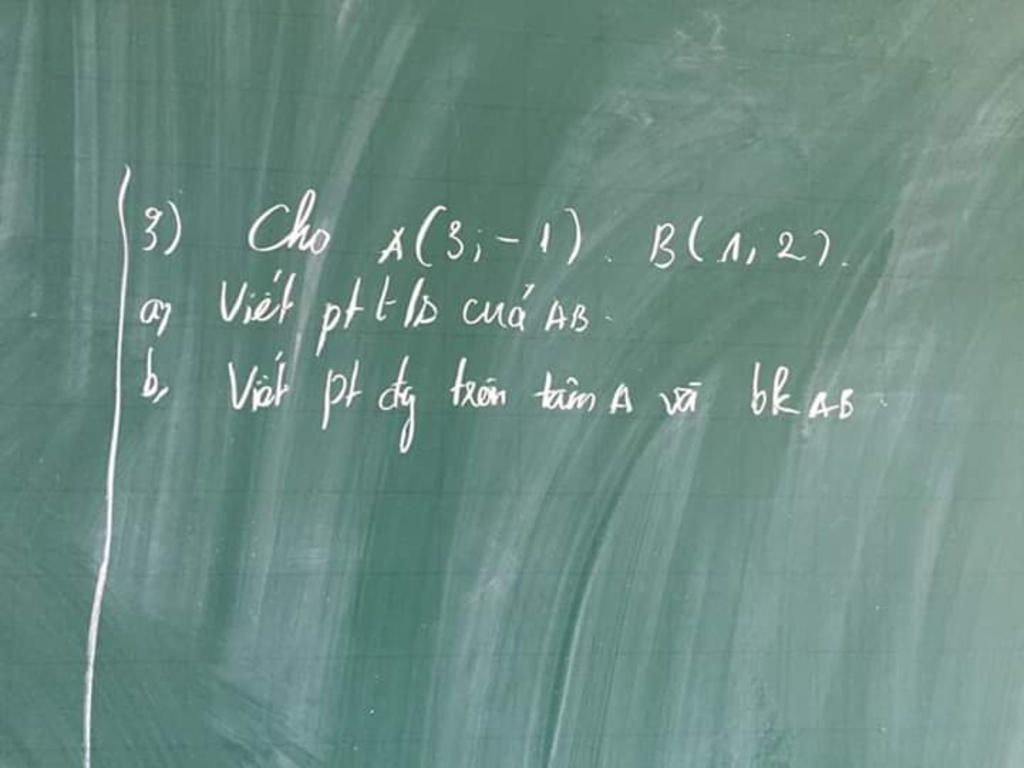 3) Cho A(3; -1). B(1; 2).
a, Viết pt t/s của AB.
b, Viết pt đg tròn tâm A và bk AB.